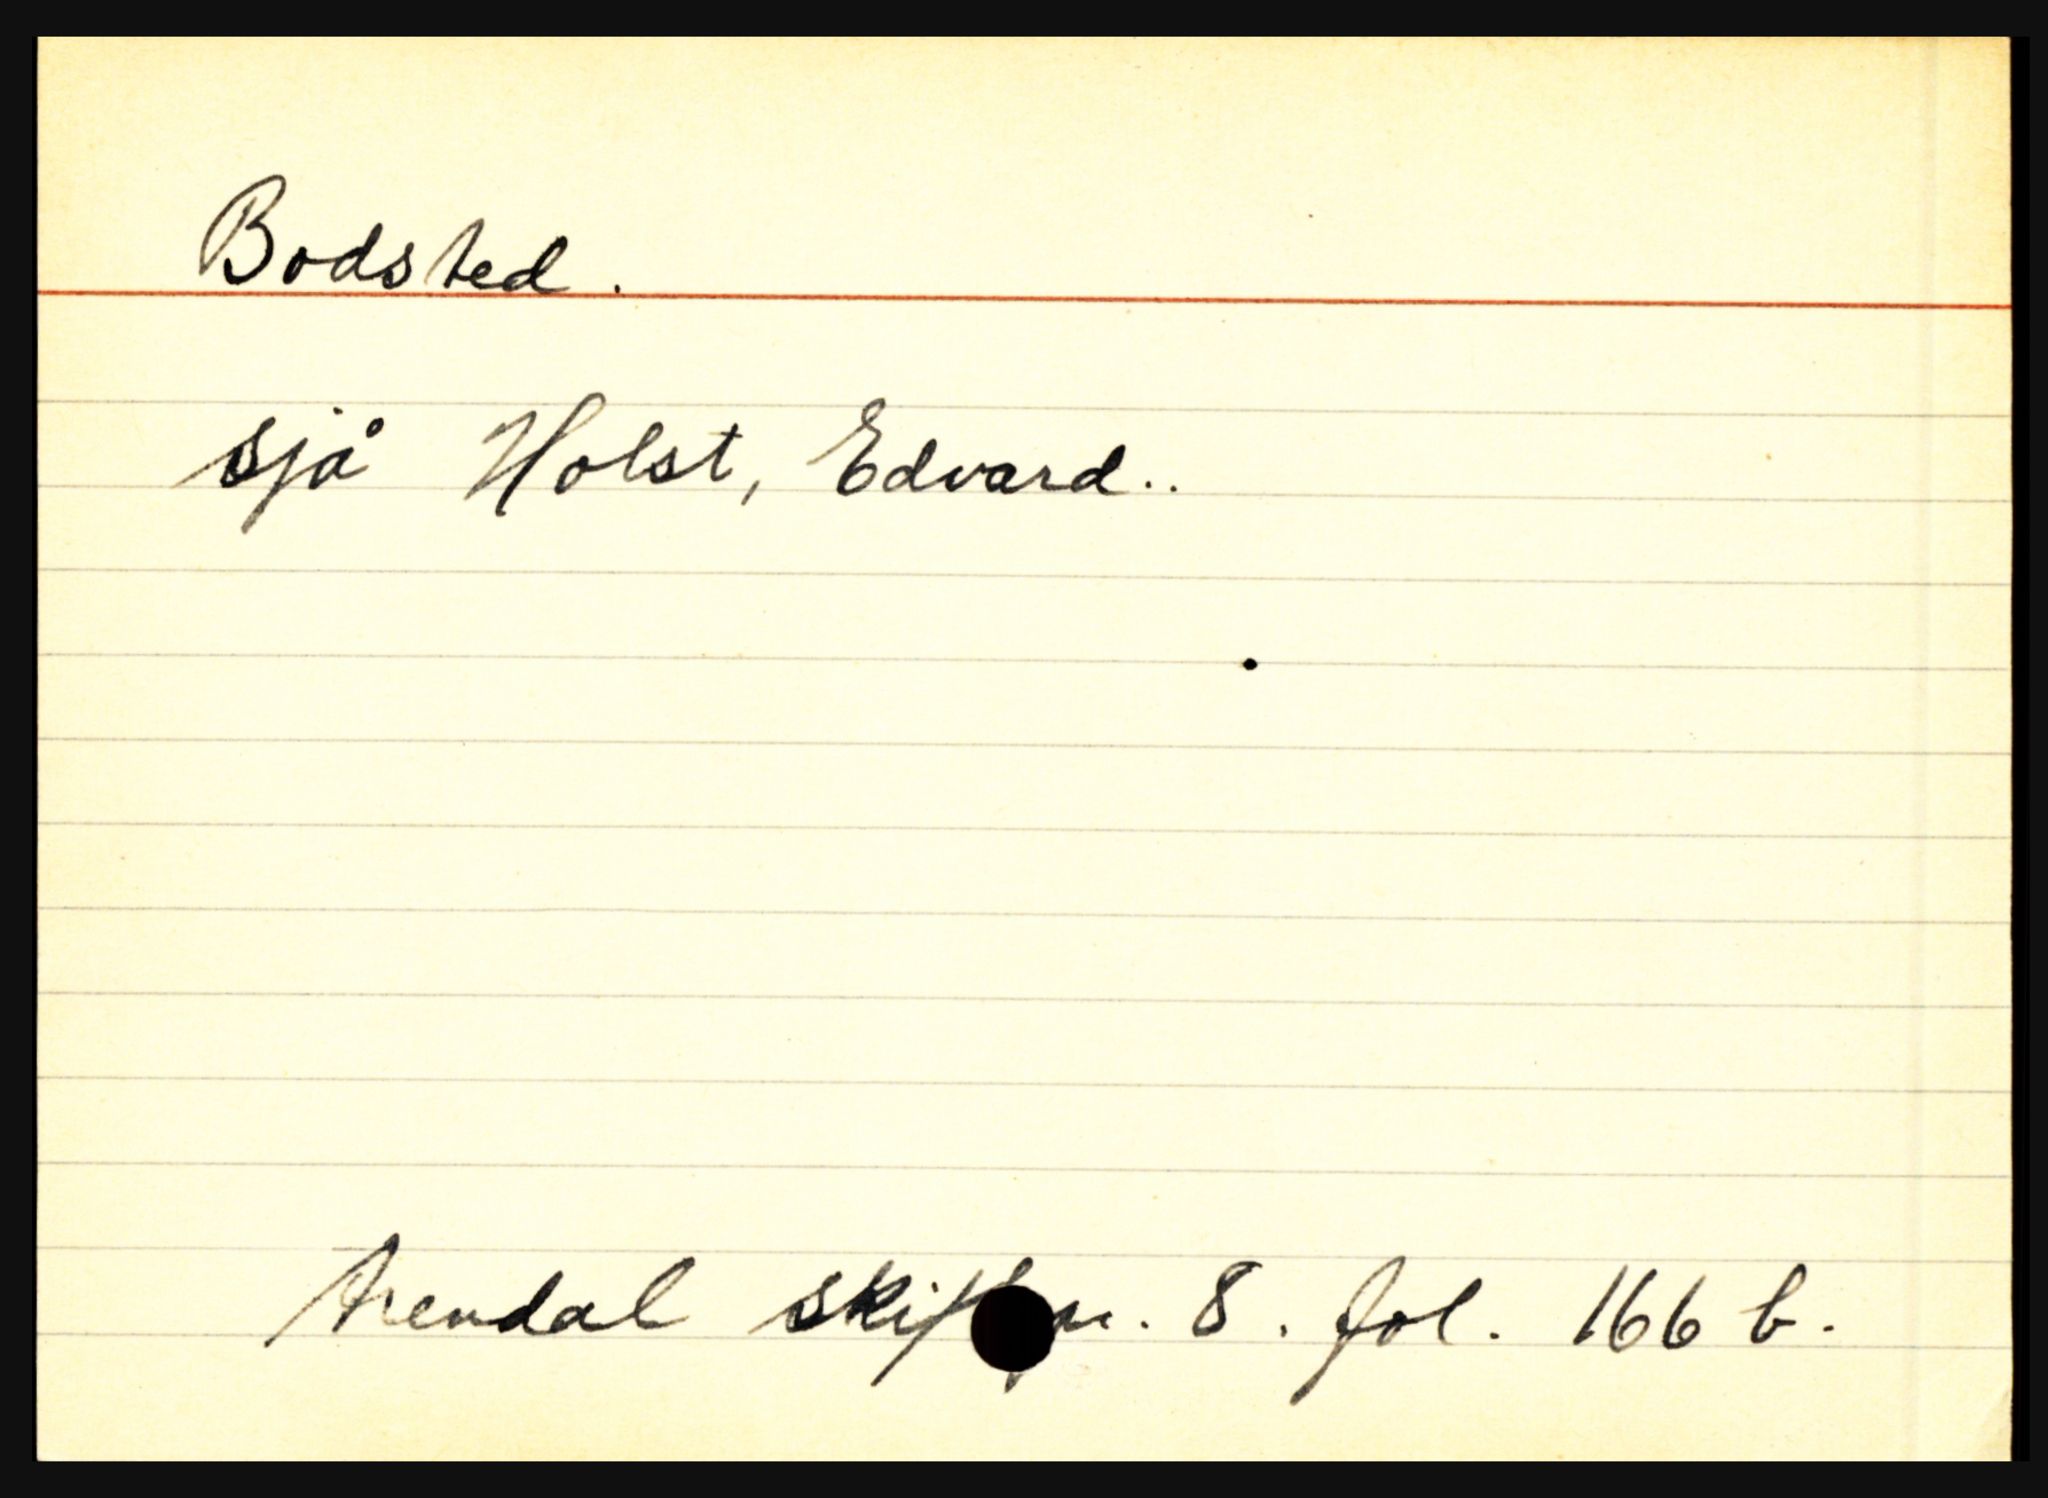 Bodsted.
sjå Holst, Edvard..
Arendal skiftpr. 8. fol. 166 b.